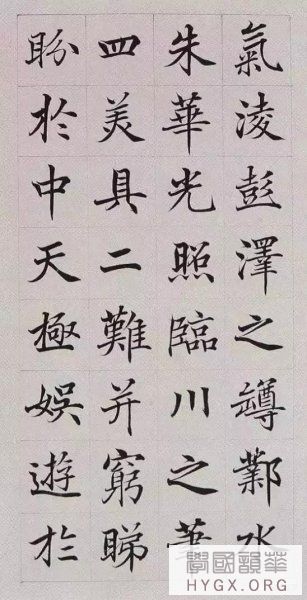 氣淩彭澤之罇鄴水
朱華光照臨川之筆
四美具二難并窮睇
盼於中天極娛遊於
華韻國學
HYGX.ORG